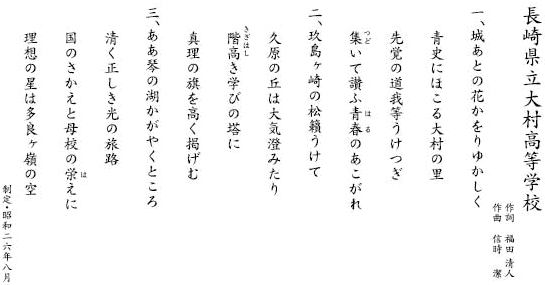 長崎県立大村高等学校
作詞　福田 清人
作曲　信時 潔
一、城あとの花かをりゆかしく
青史にほこる大村の里
先覚の道我等うけつぎ
集いて讃ふ青春のあこがれ
つど
はる
二、玖島ヶ崎の松籟うけて
久原の丘は大気澄みたり
階高き学びの塔に
きざはし
真理の旗を高く掲げむ
三、ああ琴の湖かがやくところ
清く正しき光の旅路
国のさかえと母校の栄えに
は
理想の星は多良ヶ嶺の空
制定・昭和二六年八月